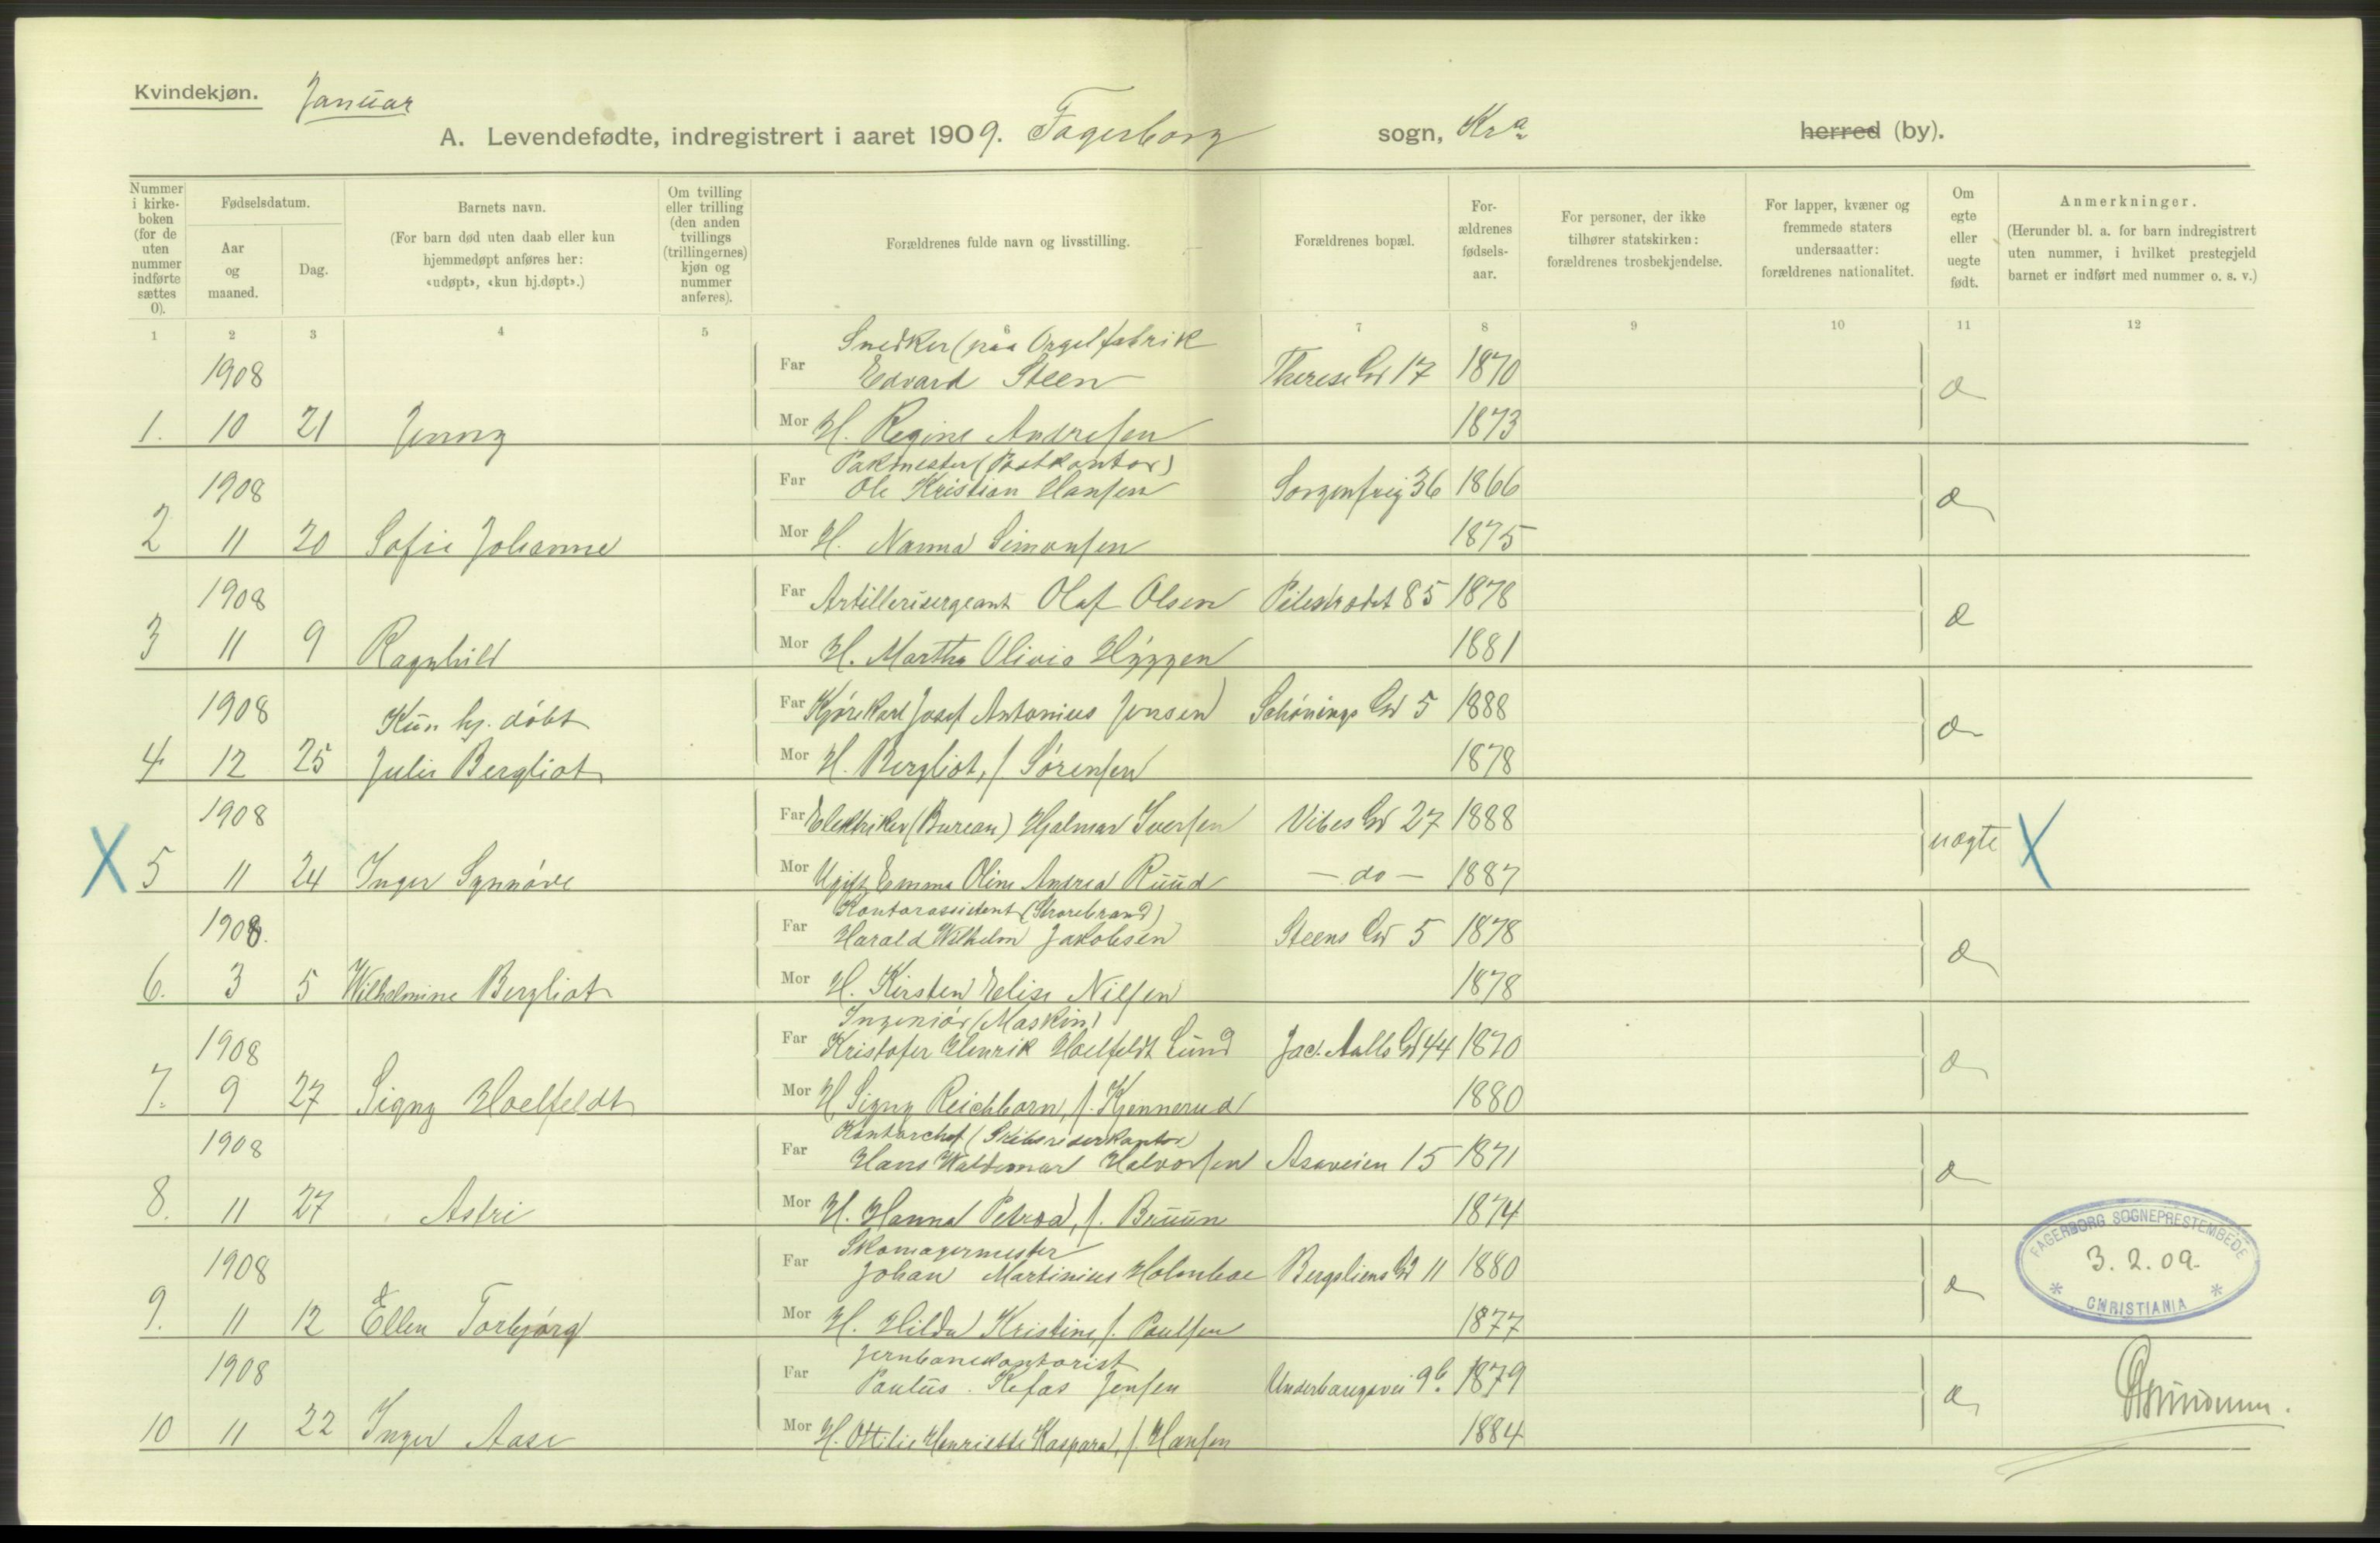 Kvindekjøn. Januar
A. Levendefødte, indregistrert i aaret 1909. Fagerborg sogn, Kra herred (by).
Nummer i kirkeboken (for de uten nummer indførte sættes 0).
Fødselsdatum.
Aar og maaned.
Dag.
Barnets navn.
(For barn død uten daab eller kun hjemmedøpt anføres her: «udøpt», «kun hj.døpt».)
Om tvilling eller trilling (den anden tvillings (trillingernes) kjøn og nummer anføres).
Forældrenes fulde navn og livsstilling.
Forældrenes bopæl.
Forældrenes fødselsaar.
For personer, der ikke tilhører statskirken: forældrenes trosbekjendelse.
For lapper, kvæner og fremmede staters undersaatter: forældrenes nationalitet.
Om egte eller uegte født.
Anmerkninger.
(Herunder bl. a. for barn indregistrert uten nummer, i hvilket prestegjeld barnet er indført med nummer o. s. v.)
1 2 3 4 5 6 7 8 9 10 11 12
Snedker (paa Orgelfabrik
1908 Far Edvard Steen Therese Gd 17 1870 æ
1. 10 21 Jenny Mor H. Regine Andresen 1873
Pakmester (Postkontor)
1908 Far Ole Kristian Hansen Sorgenfrig 36 1866 æ
2 11 20 Sofie Johanne Mor H. Nanna Simonsen 1875
1908 Far Artillerisergeant Olaf Olsen Pilestrædet 85 1878 æ
3 11 9 Ragnhild Mor H. Martha Olivia Hyggen 1881
1908 Kun hj. døbt Far Kjørekarl Josef Antonius Jensen Schønings Gd 5 1888 æ
4 12 25 Julie Bergliot Mor H. Bergliot, f Sørensen 1878
1908 Far Elektriker (Bureau) Hjalmar Iversen Vibes Gd 27 1888 uægte X
X 5 11 24 Inger Synnøve Mor Ugift Emma Oline Andrea Ruud - do - 1887
Kontorassistent (Storebrand)
1908. Far Harald Wilhelm Jakobsen Steens Gd 5 1878 æ
6. 3 5 Wilhelmine Bergliot Mor H. Kirsten Elise Nilsen 1878
Ingeniør (Maskin)
1908 Far Kristofer Henrik Hoelfeldt Lund Jac. Aalls Gd 44 1870 æ
7. 9 27 Signy Hoelfeldt Mor H. Signy Reichborn, f. Kjennerud 1880
Kontorchef
1908 Far Hans Waldemar Halvorsen Asaveien 15 1871 æ
8. 11 27 Astri Mor H. Hanna Petrea, f. Bruun 1874
Skomagermester
1908 Far Johan Martinius Holmboe Bergsliens Gd 11 1880 æ
9. 11 12 Ellen Torbjørg Mor H. Hilda Kristine, f. Paulsen 1877
Jernbanekontorist
1908 Far Paulus Kefas Jensen Underhaugsvei 9b. 1879 æ
10 11 22 Inger Aase Mor H. Ottilie Henriette Kaspara, f. Hansen 1884
FAGERBORG SOGNEPRESTEMBEDE
3. 2. 09.
* CHRISTIANIA *